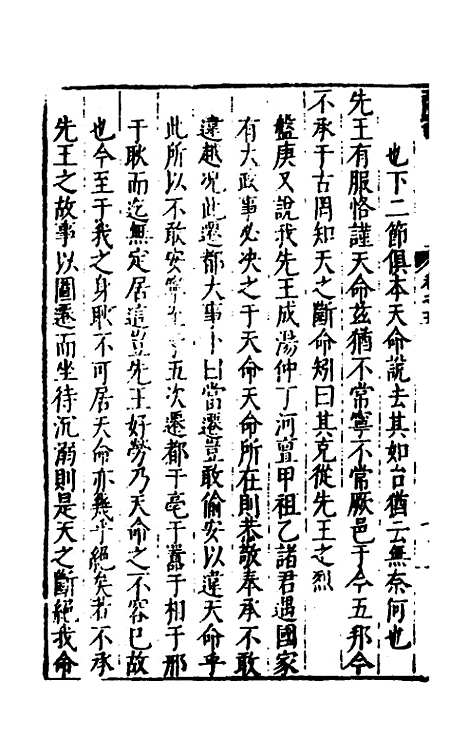 也下二節俱本天命說去其如台猶云無奈何也
先王有服恪謹天命茲猶不常寧不常厥邑于今五邦今
不承于古罔知天之斷命矧曰其克從先王之烈
盤庚又說我先王成湯仲丁河亶甲祖乙諸君遇國家
有大政事必決之于天命天命所在則恭敬奉承不敢
違越況此遷都大事卜曰當遷豈敢偷安以違天命乎
此所以不敢安寧至于五次遷都于亳于囂于相于邢
于耿而迄無定居這豈先王好勞乃天命之不容已故
也今至于我之身耿不可居天命亦幾乎絕矣若不承
先王之故事以圖遷而坐待沉溺則是天之斷絕我命